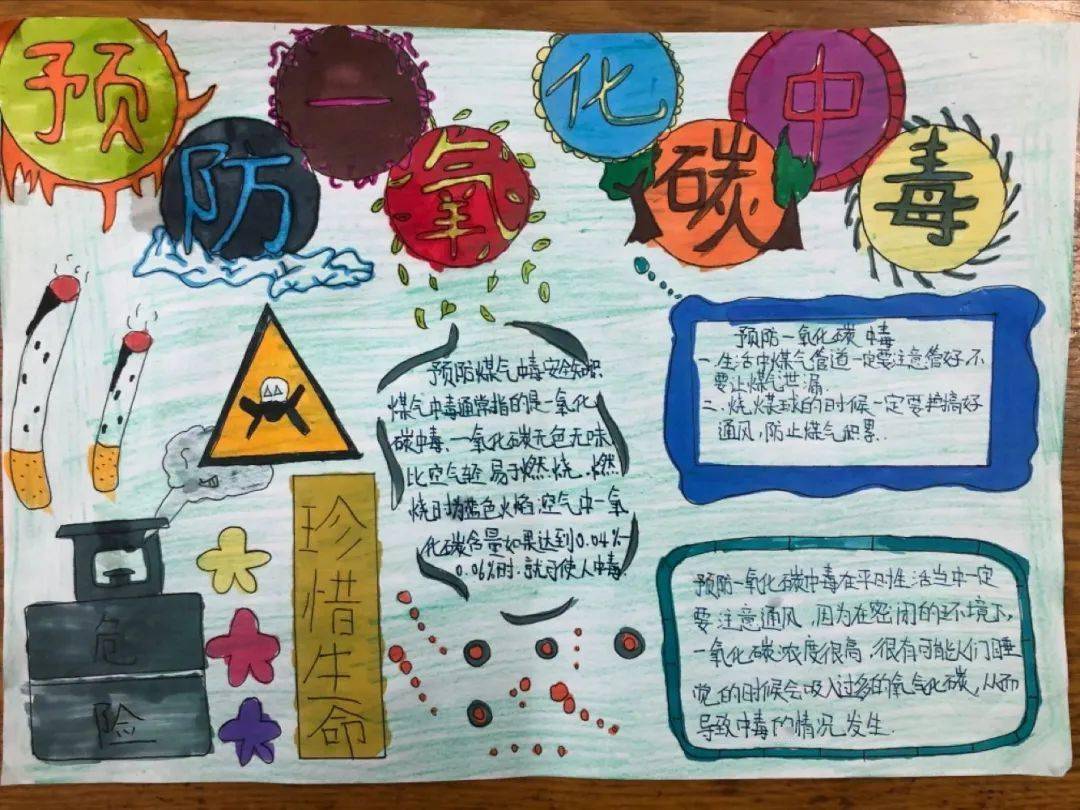 预防一氧化碳中毒
预防煤气中毒安全知识
煤气中毒通常指的是一氧化
碳中毒、一氧化碳无色无味
比空气轻易于燃烧、燃
烧时为蓝色火焰,空气中一氧
化碳含量如果达到0.04%-
0.06%时.就可使人中毒.
预防一氧化碳中毒
一.生活中煤气管道一定要注意管好,不
要让煤气泄漏.
二.烧煤球的时候一定要搞好
通风,防止煤气积累.
预防一氧化碳中毒在平时生活当中一定
要注意通风,因为在密闭的环境下,
一氧化碳浓度很高.很有可能人们睡
觉的时候会吸入过多的氧气化碳,从而
导致中毒的情况发生.
珍惜生命
危
险